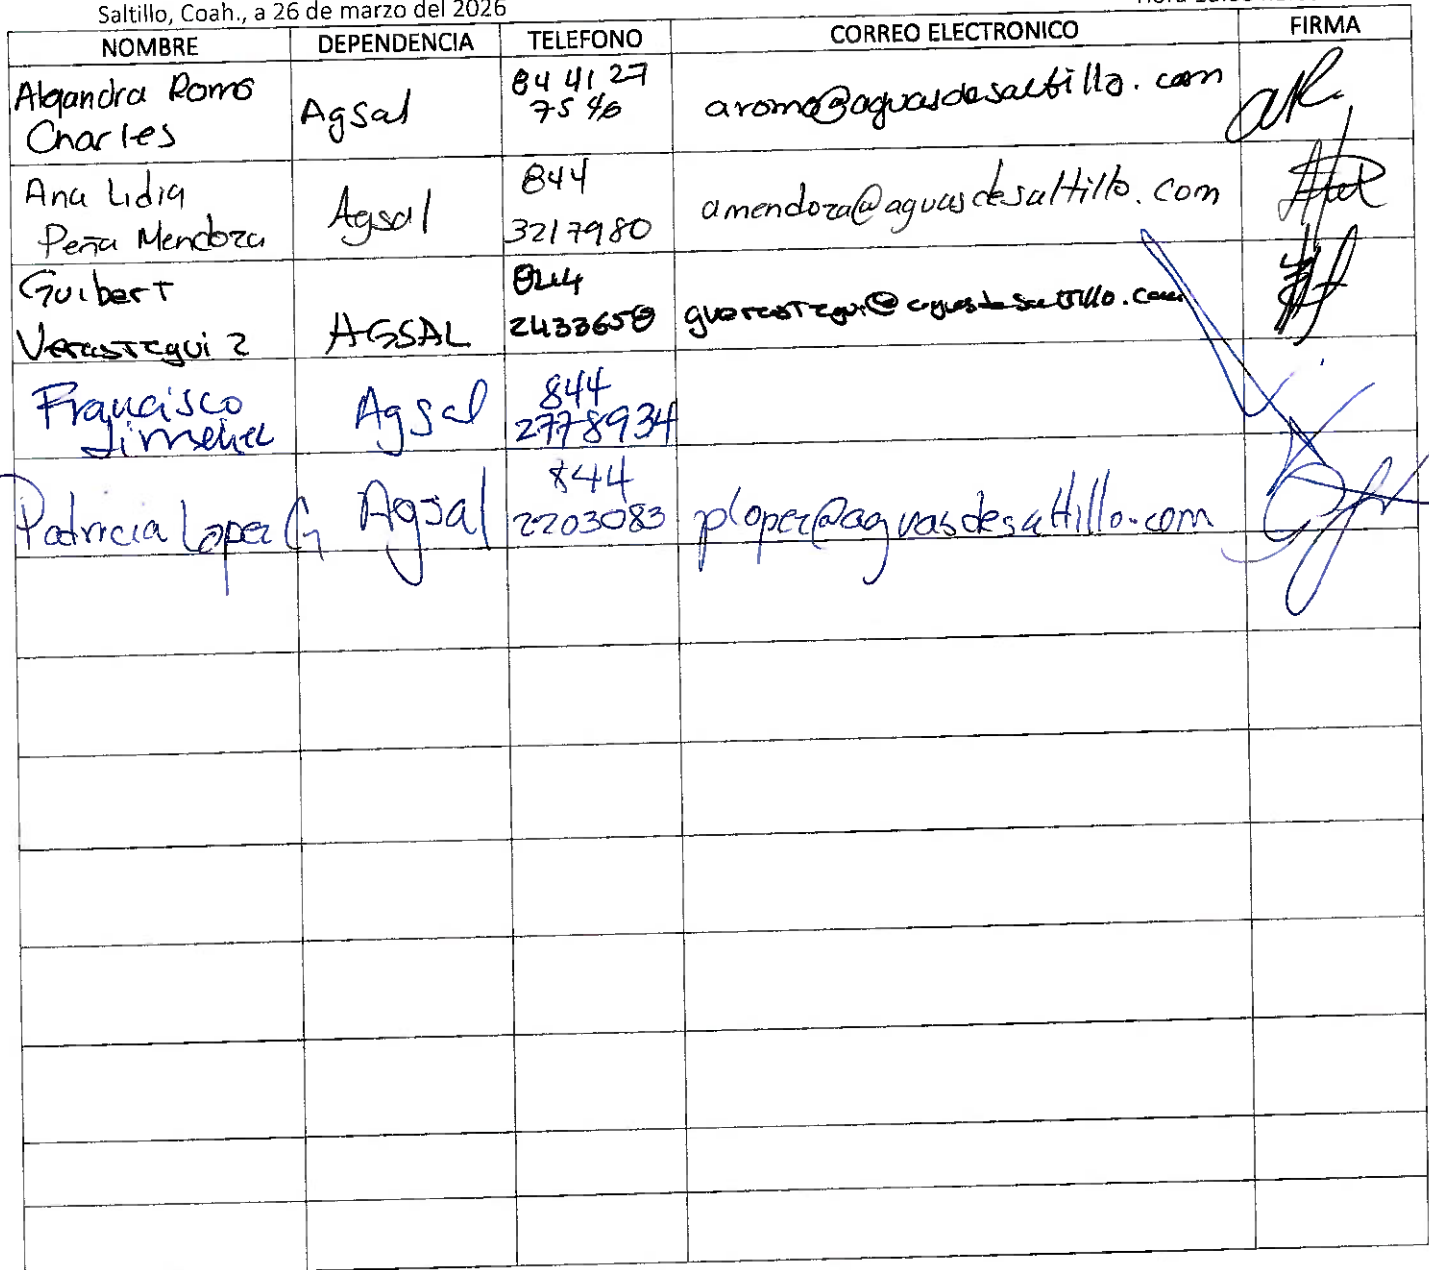 Saltillo, Coah., a 26 de marzo del 2026
NOMBRE DEPENDENCIA TELEFONO CORREO ELECTRONICO FIRMA
Alejandra Romo Charles Agsal 84 41 27 75 46 aromo@aguasdesaltillo.com
Ana Lidia Peña Mendoza Agsal 844 3217980 amendoza@aguasdesaltillo.com
Guibert Verastegui Z AGSAL 844 2433658 gverastegui@aguasdesaltillo.com
Francisco Jimenez Agsal 844 2778934
Patricia Lopez G Agsal 844 2203083 plopez@aguasdesaltillo.com